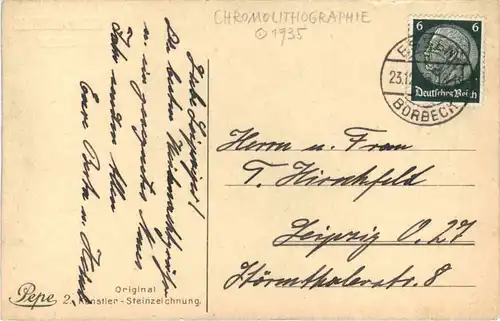 CHROMOLITHOGRAPHIE
© 1935
6 6
Deutsches Reich
ESSEN
23.12
BORBECK
Liebe Leipziger!
Die besten Weihnachtsgrüße
u. ein gesegnetes Neues
Jahr senden Allen
Eure Berta u.
Herrn u. Frau
T. Hirschfeld
Leipzig O. 27
Störmthalerstr. 8
Original
Pepe 2. Künstler - Steinzeichnung.